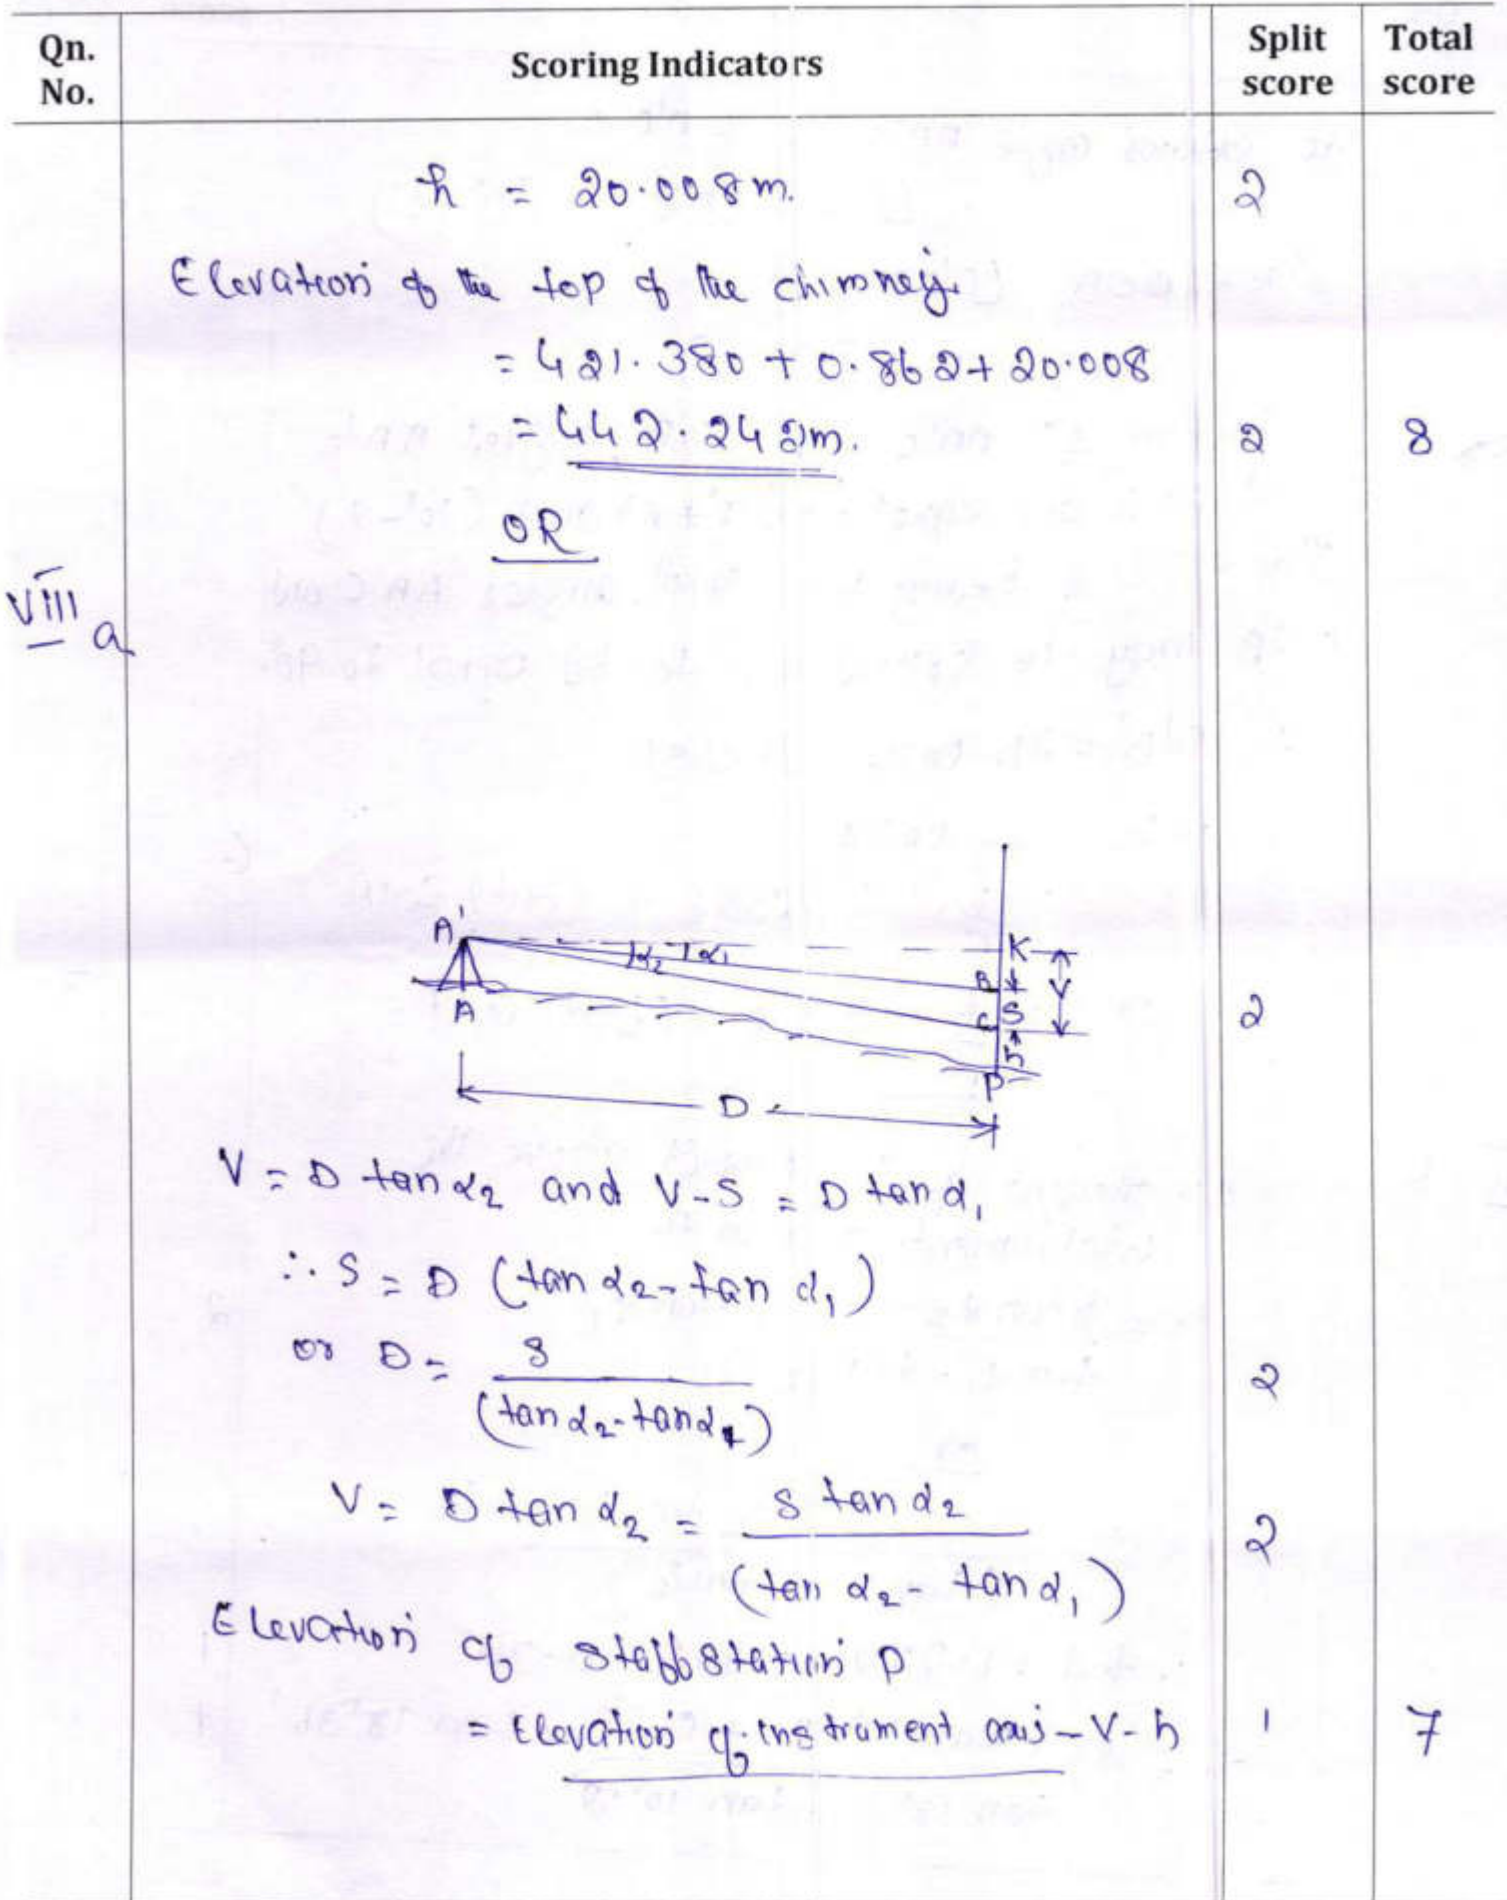 Qn. No. Scoring Indicators Split score Total score
h = 20.008m. 2
Elevation of the top of the chimney.
= 421.380 + 0.862 + 20.008
= 442.242m. 2 8
OR
VIII a
A' α2 α1 K
B V
A C S 2
h
P
D
V = D tan α2 and V-S = D tan α1
∴ S = D (tan α2 - tan α1)
or D = S / (tan α2 - tan α1) 2
V = D tan α2 = S tan α2 / (tan α2 - tan α1) 2
Elevation of staff station P
= Elevation of instrument axis - V - h 1 7